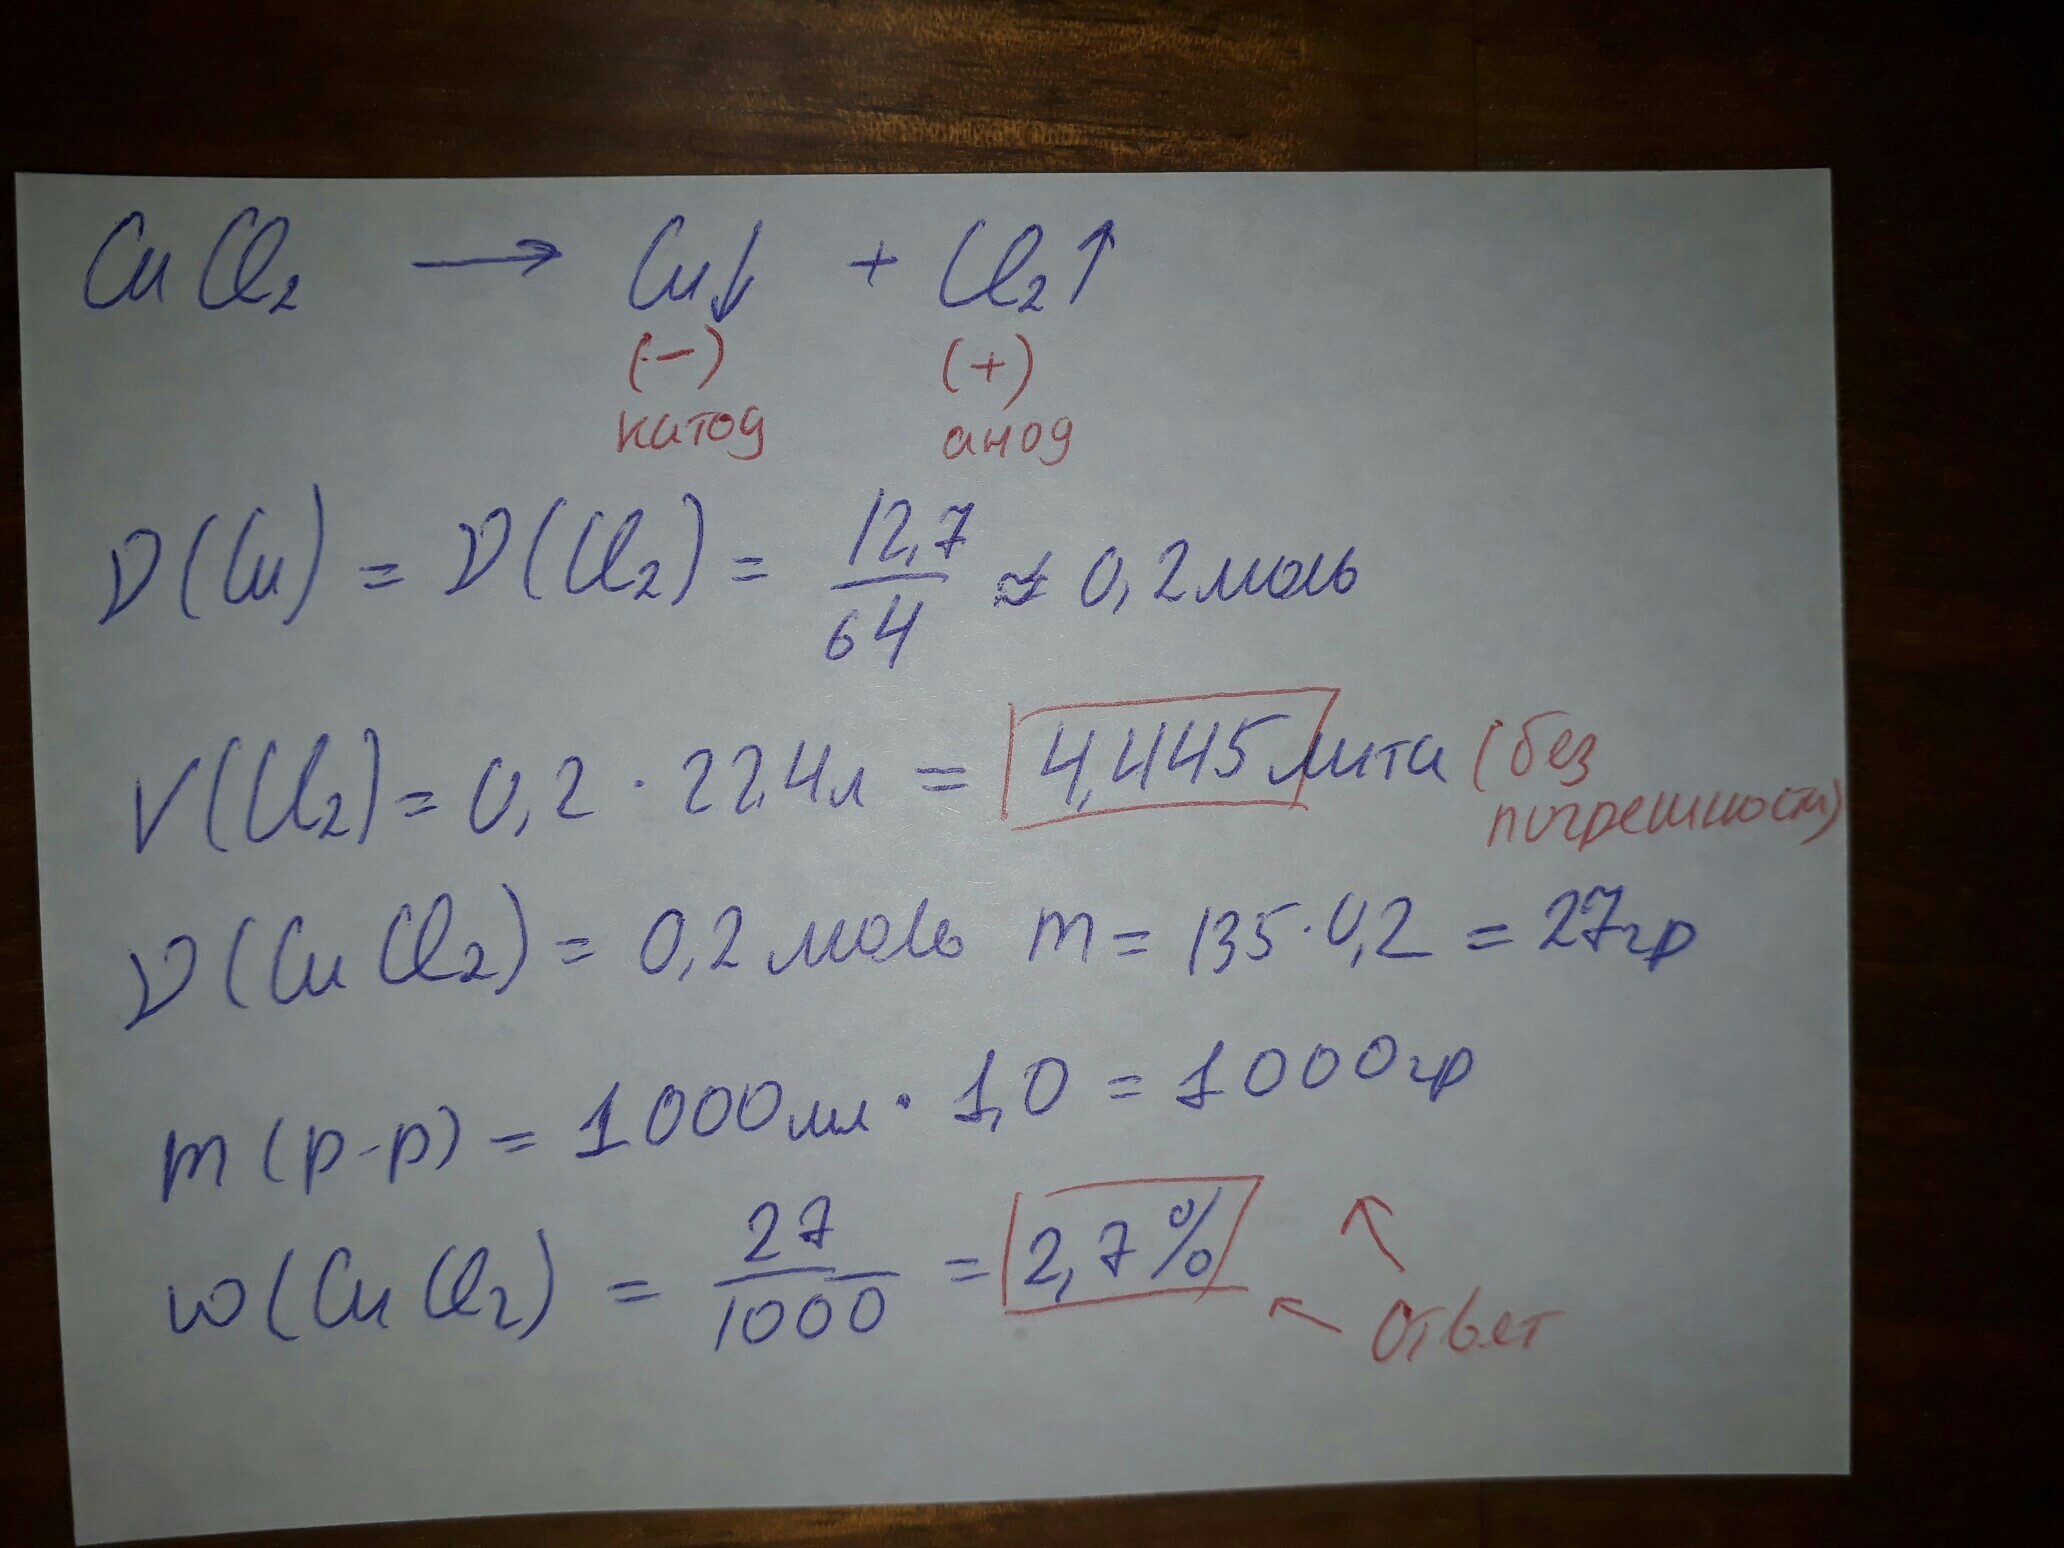 CuCl₂ → Cu↓ + Cl₂↑
(-) (+)
катод анод
ν(Cu) = ν(Cl₂) = 12,7/64 ≈ 0,2 моль
V(Cl₂) = 0,2 · 22,4л = 4,445 лита (без погрешности)
ν(CuCl₂) = 0,2 моль m = 135·0,2 = 27гр
m(р-р) = 1000мл · 1,0 = 1000гр
ω(CuCl₂) = 27/1000 = 2,7%
Ответ